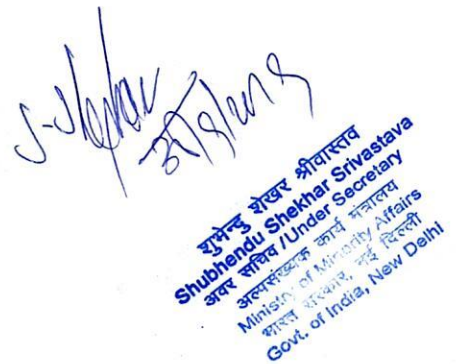 S-Shekhar
शुभेन्दु शेखर श्रीवास्तव
Shubhendu Shekhar Srivastava
अवर सचिव / Under Secretary
अल्पसंख्यक कार्य मंत्रालय
Ministry of Minority Affairs
भारत सरकार, नई दिल्ली
Govt. of India, New Delhi